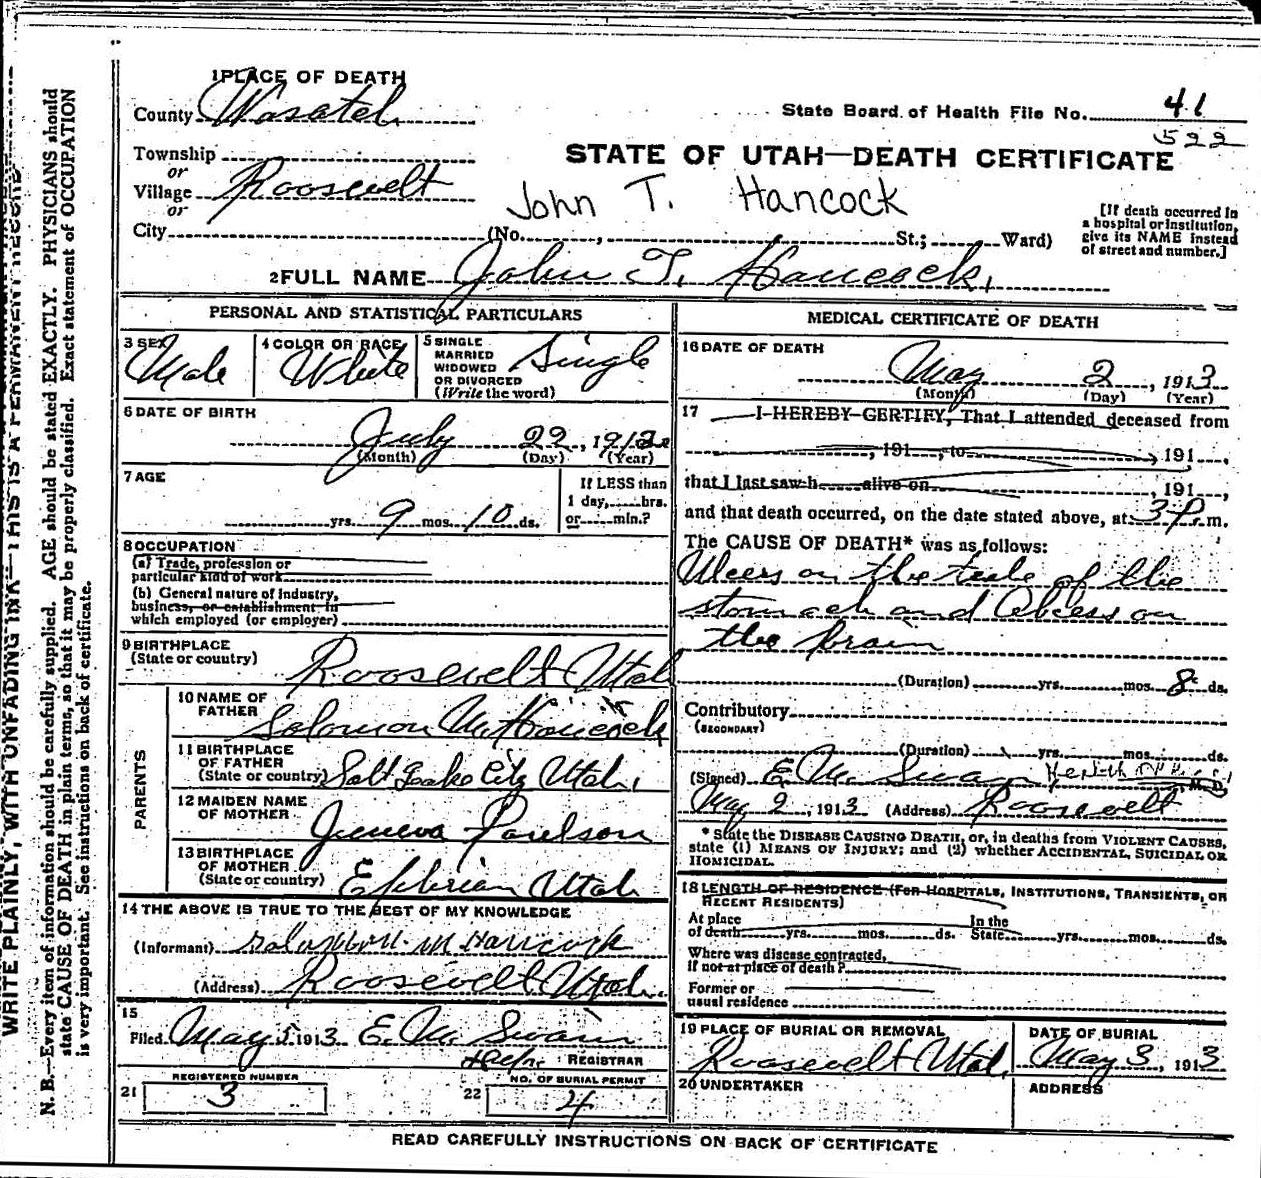 1 PLACE OF DEATH
County Wasatch
State Board of Health File No. 41
522
Township
or
Village Roosevelt
or
City
STATE OF UTAH—DEATH CERTIFICATE
John T. Hancock
(No. , St.; Ward)
[If death occurred in
a hospital or institution,
give its NAME instead
of street and number.]
2 FULL NAME John T. Hancock.
PERSONAL AND STATISTICAL PARTICULARS
3 SEX Male
4 COLOR OR RACE White
5 SINGLE
MARRIED
WIDOWED
OR DIVORCED
(Write the word)
Single
6 DATE OF BIRTH
July 22, 1912
(Month) (Day) (Year)
7 AGE
yrs. 9 mos. 10 ds.
If LESS than
1 day, hrs.
or min.?
8 OCCUPATION
(a) Trade, profession or
particular kind of work
(b) General nature of industry,
business, or establishment in
which employed (or employer)
9 BIRTHPLACE
(State or country)
Roosevelt Utah
PARENTS
10 NAME OF
FATHER
Solomon M. Hancock
11 BIRTHPLACE
OF FATHER
(State or country) Salt Lake City Utah.
12 MAIDEN NAME
OF MOTHER
Geneva Poulson
13 BIRTHPLACE
OF MOTHER
(State or country) Ephriam Utah
14 THE ABOVE IS TRUE TO THE BEST OF MY KNOWLEDGE
(Informant) Solomon M Hancock
(Address) Roosevelt Utah.
15
Filed May 5, 1913 E. M. Swain
REGISTRAR
REGISTERED NUMBER
21 3
NO. OF BURIAL PERMIT
22 4
MEDICAL CERTIFICATE OF DEATH
16 DATE OF DEATH
May 2, 1913
(Month) (Day) (Year)
17 I HEREBY CERTIFY, That I attended deceased from
, 191 , to , 191 ,
that I last saw h alive on , 191 ,
and that death occurred, on the date stated above, at 3 P. m.
The CAUSE OF DEATH* was as follows:
Ulcers on the tube of the
stomach and Abcess on
the brain
(Duration) yrs. mos. 8 ds.
Contributory
(SECONDARY)
(Duration) yrs. mos. ds.
(Signed) E. M. Swain Health M. D.
May 2, 1913 (Address) Roosevelt
* State the DISEASE CAUSING DEATH, or, in deaths from VIOLENT CAUSES,
state (1) MEANS OF INJURY; and (2) whether ACCIDENTAL, SUICIDAL OR
HOMICIDAL.
18 LENGTH OF RESIDENCE (FOR HOSPITALS, INSTITUTIONS, TRANSIENTS, OR
RECENT RESIDENTS)
At place
of death yrs. mos. ds.
In the
State yrs. mos. ds.
Where was disease contracted,
if not at place of death?
Former or
usual residence
19 PLACE OF BURIAL OR REMOVAL
Roosevelt Utah.
DATE OF BURIAL
May 3, 1913
20 UNDERTAKER
ADDRESS
READ CAREFULLY INSTRUCTIONS ON BACK OF CERTIFICATE
WRITE PLAINLY, WITH UNFADING INK—THIS IS A PERMANENT RECORD
N. B.—Every item of information should be carefully supplied. AGE should be stated EXACTLY. PHYSICIANS should
state CAUSE OF DEATH in plain terms, so that it may be properly classified. Exact statement of OCCUPATION
is very important. See instructions on back of certificate.